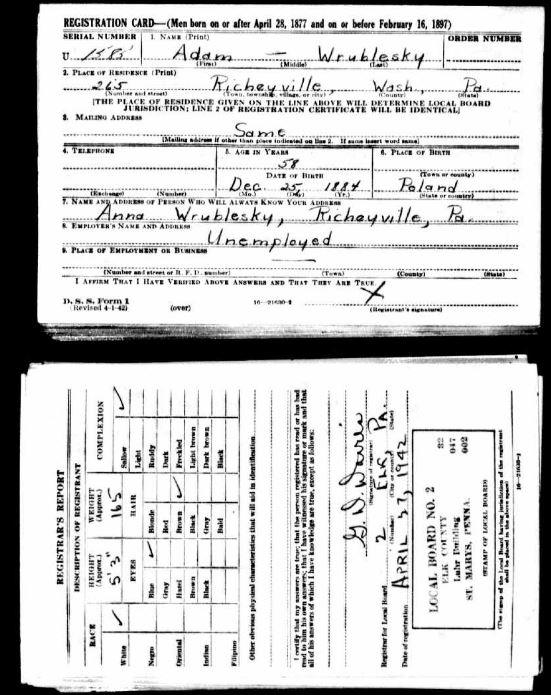 REGISTRATION CARD—(Men born on or after April 28, 1877 and on or before February 16, 1897)
SERIAL NUMBER 1. NAME (Print) ORDER NUMBER
U 1585 Adam — Wrublesky
(First) (Middle) (Last)
2. PLACE OF RESIDENCE (Print)
265 Richeyville, Wash, Pa.
(Number and street) (Town, township, village, or city) (County) (State)
[THE PLACE OF RESIDENCE GIVEN ON THE LINE ABOVE WILL DETERMINE LOCAL BOARD
JURISDICTION; LINE 2 OF REGISTRATION CERTIFICATE WILL BE IDENTICAL]
3. MAILING ADDRESS
Same
[Mailing address if other than place indicated on line 2. If same insert word same]
4. TELEPHONE 5. AGE IN YEARS 6. PLACE OF BIRTH
58
DATE OF BIRTH (Town or county)
Dec. 25, 1884 Poland
(Exchange) (Number) (Mo.) (Day) (Yr.) (State or country)
7. NAME AND ADDRESS OF PERSON WHO WILL ALWAYS KNOW YOUR ADDRESS
Anna Wrublesky, Richeyville, Pa.
8. EMPLOYER'S NAME AND ADDRESS
Unemployed
9. PLACE OF EMPLOYMENT OR BUSINESS
(Number and street or R. F. D. number) (Town) (County) (State)
I AFFIRM THAT I HAVE VERIFIED ABOVE ANSWERS AND THAT THEY ARE TRUE.
X
D. S. S. Form 1
(Revised 4-1-42) (over) 16—21630-1 (Registrant's signature)
REGISTRAR'S REPORT
DESCRIPTION OF REGISTRANT
RACE HEIGHT (Approx.) WEIGHT (Approx.) COMPLEXION
5' 3" 165
EYES HAIR
White Sallow
Light
Negro Blue Blonde Ruddy
Gray Red Dark
Oriental Hazel Brown Freckled
Brown Black Light brown
Indian Black Gray Dark brown
Bald Black
Filipino
Other obvious physical characteristics that will aid in identification
I certify that my answers are true; that the person registered has read or has had
read to him his own answers; that I have witnessed his signature or mark and that
all of his answers of which I have knowledge are true, except as follows:
(Signature of registrar)
Registrar for Local Board 2 ELK PA.
(Number) (City or county) (State)
Date of registration APRIL 27, 1942
LOCAL BOARD NO. 2 32
ELK COUNTY 047
Luhr Building 002
ST. MARYS, PENNA.
(STAMP OF LOCAL BOARD)
(The stamp of the Local Board having jurisdiction of the registrant
shall be placed in the above space)
16—21630-1